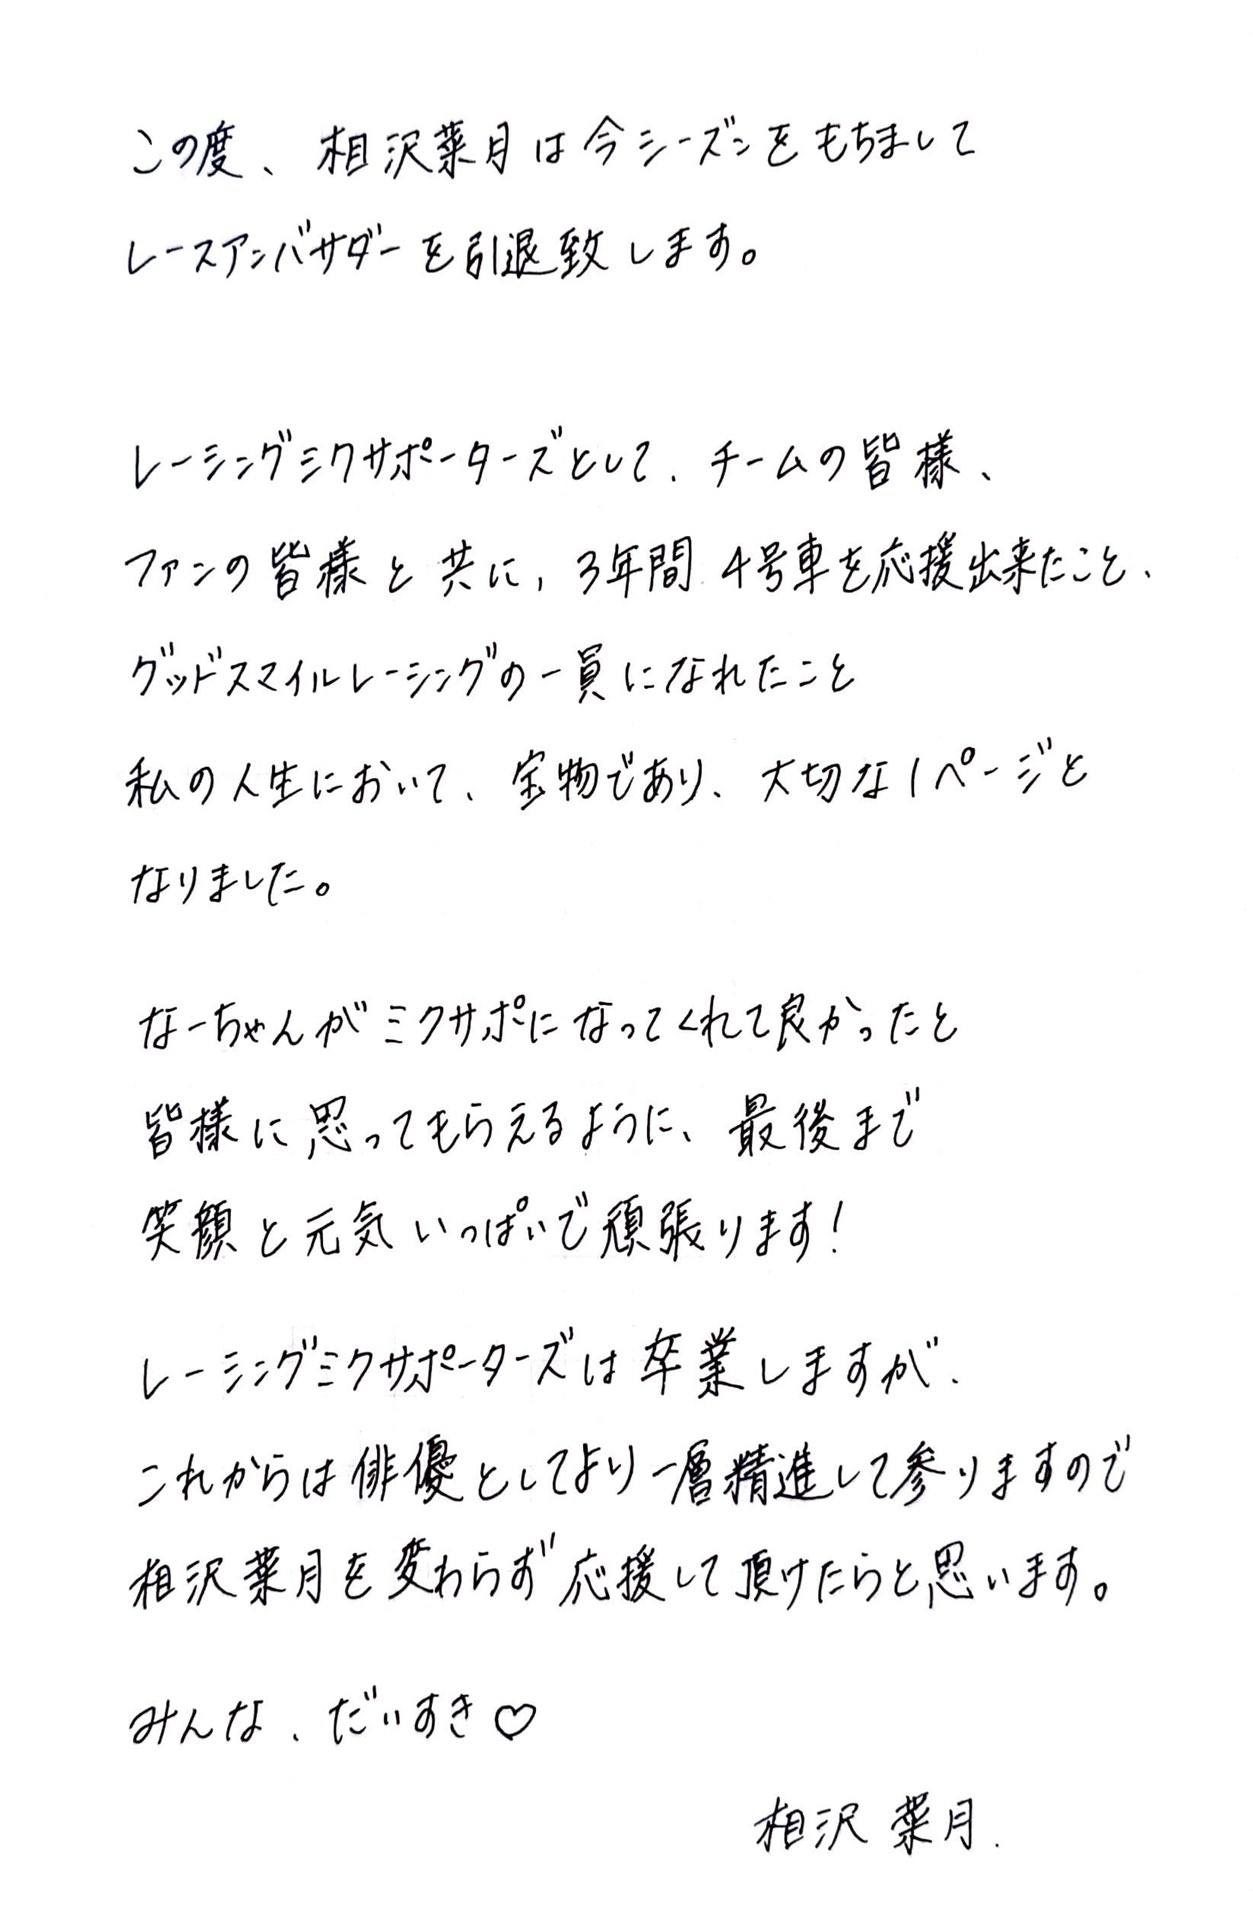 この度、相沢菜月は今シーズンをもちまして
レースアンバサダーを引退致します。
レーシングミクサポーターズとして、チームの皆様、
ファンの皆様と共に、3年間 4号車を応援出来たこと、
グッドスマイルレーシングの一員になれたこと
私の人生において、宝物であり、大切な1ページと
なりました。
なーちゃんがミクサポになってくれて良かったと
皆様に思ってもらえるように、最後まで
笑顔と元気いっぱいで頑張ります!
レーシングミクサポーターズは卒業しますが、
これからは俳優としてより一層精進して参りますので
相沢菜月を変わらず応援して頂けたらと思います。
みんな、だいすき♡
相沢 菜月.